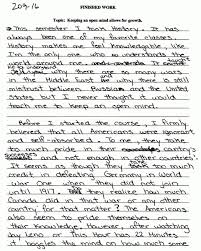 209-16
FINISHED WORK
Topic: Keeping an open mind allows for growth.
This semester I took History. It has
always been one of my favorite classes.
History makes me feel knowledgable like
I'm the only one who understands the
world around me.
why there are so many wars
in the Middle East and why there is still
mistrust between Russia and the United
States. But I never thought it would
teach me to keep an open mind.
Before I started the course, I firmly
believed that all Americans were ignorant
and self-absorbed. To me, they take
too much pride in their country
and not enough in other countries'.
It seems as though they took too much
credit in defeating Germany in World
War One when they did not join
until 1917. They realize how much
Canada did in that war or any other
country for that matter? The Americans
also seems to pride themselves
their knowledge. However, after watching
on This Hour has 22 Minutes it
boggles the mind on how much some